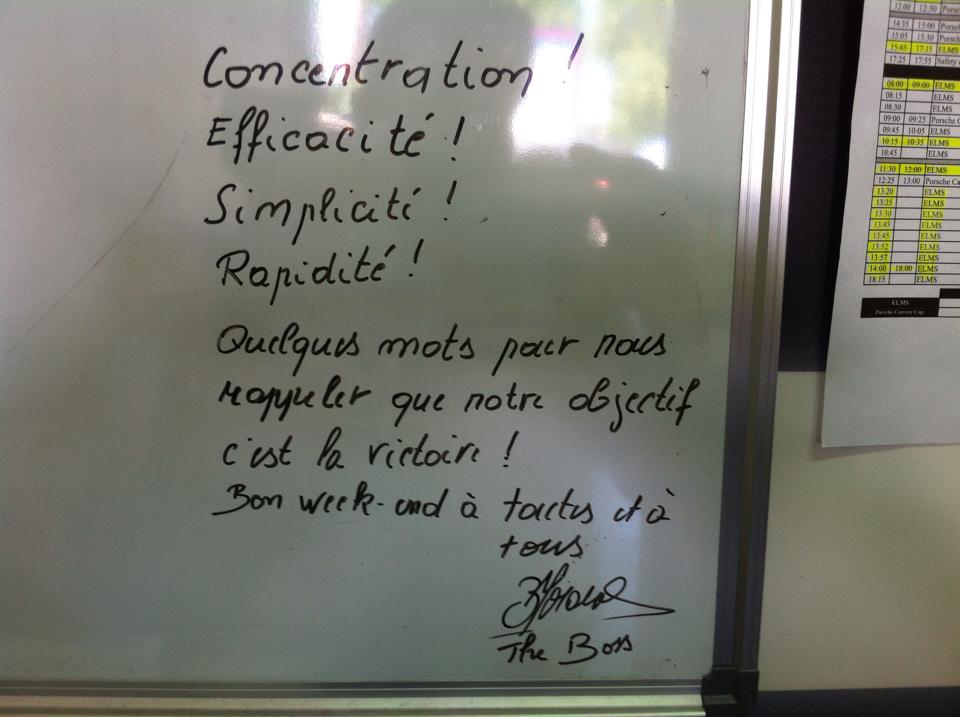 Concentration !
Efficacité !
Simplicité !
Rapidité !
Quelques mots pour nous
rappeler que notre objectif
c'est la victoire !
Bon week-end à toutes et à
tous
The Boss
12:00 12:30 Porsche
14:35 15:00 Porsch
15:05 15:30 Porsch
15:45 17:15 ELMS
17:25 17:55 Safety
08:00 09:00 ELMS
08:15 ELMS
08:30 ELMS
09:00 09:25 Porsche C
09:45 10:05 ELMS
10:15 10:35 ELMS
10:45 ELMS
11:30 12:00 ELMS
12:25 13:00 Porsche Ca
13:20 ELMS
13:25 ELMS
13:30 ELMS
13:45 ELMS
13:45 ELMS
13:52 ELMS
13:57 ELMS
14:00 18:00 ELMS
18:15 ELMS
ELMS
Porsche Carrera Cup